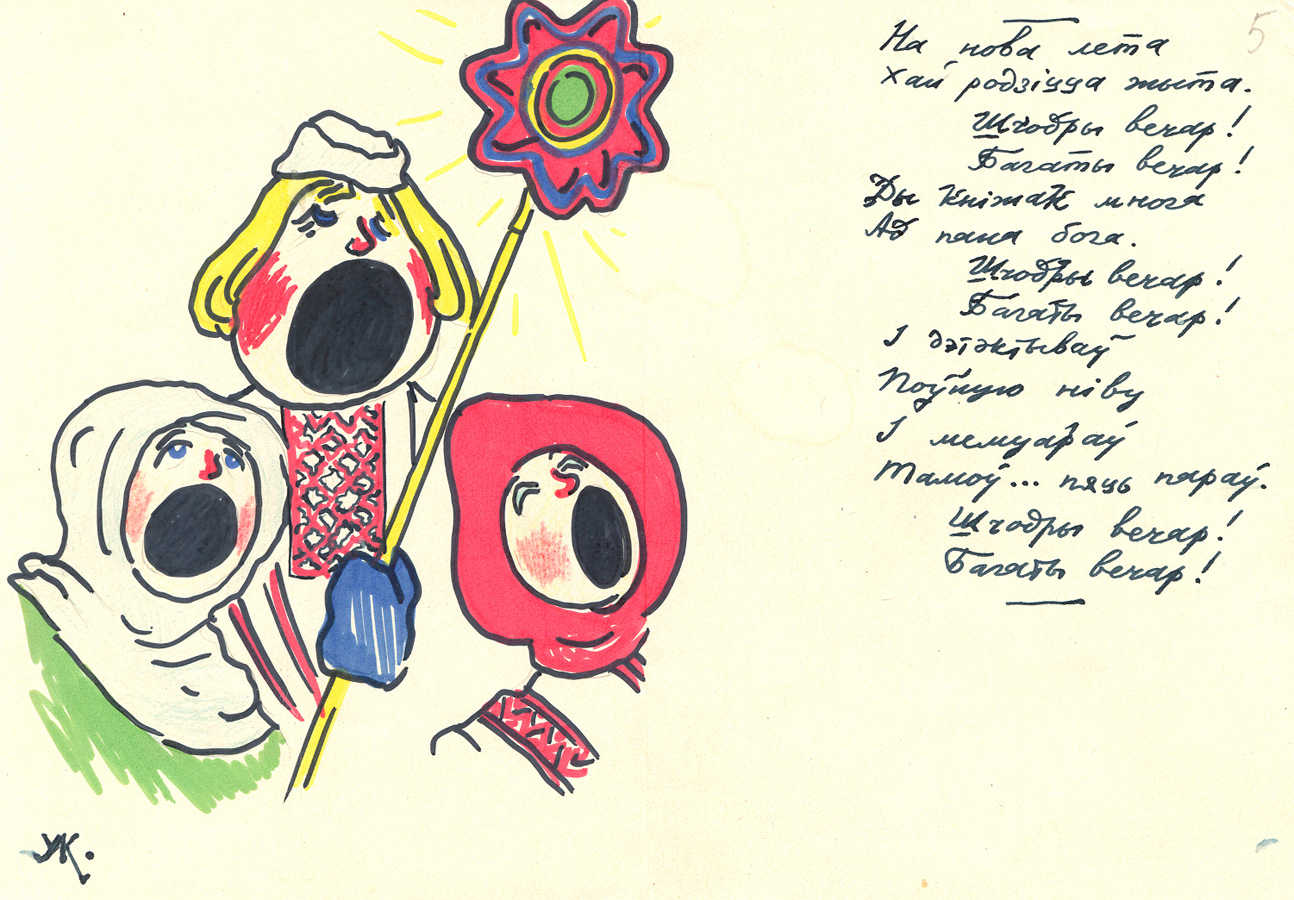 5
На нова лета
Хай родзіцца жыта.
Шчодры вечар!
Багаты вечар!
Ды кніжак многа
Ад пана бога.
Шчодры вечар!
Багаты вечар!
І дэтэктываў
Поўную ніву
І мемуараў
Тамоў... пяць параў.
Шчодры вечар!
Багаты вечар!
УК.